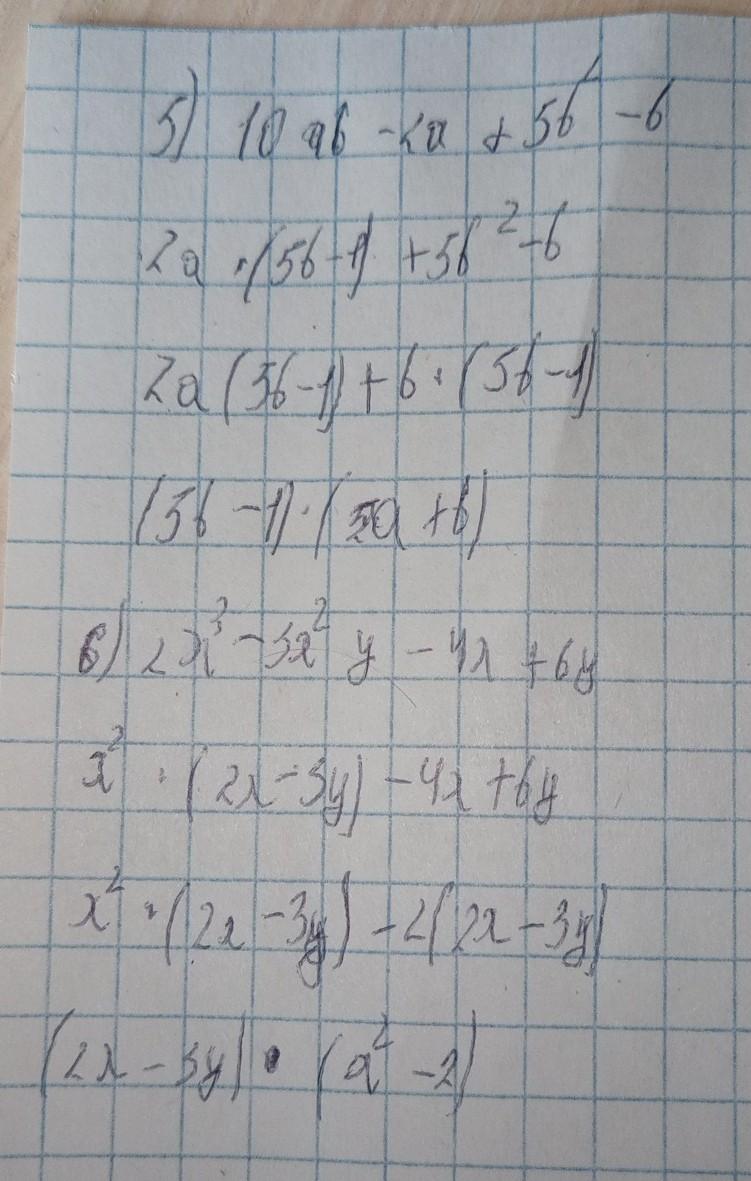 5) 10ab - 2a + 5b² - b
2a · (5b - 1) + 5b² - b
2a (5b - 1) + b · (5b - 1)
(5b - 1) · (2a + b)
6) 2x³ - 3x² y - 4x + 6y
x² · (2x - 3y) - 4x + 6y
x² · (2x - 3y) - 2(2x - 3y)
(2x - 3y) · (x² - 2)